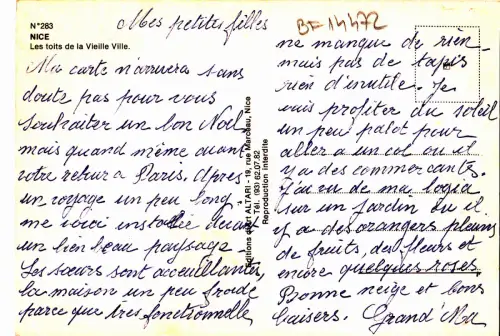 N°283
NICE
Les toits de la Vieille Ville.
BF 14472
Mes petites filles
Ma carte n'arrivera sans
doute pas pour vous
souhaiter un bon Noël
mais quand même avant
votre retour à Paris. Après
un voyage un peu long,
me voici installée devant
un bien beau paysage
Les sœurs sont accueillantes,
la maison un peu froide
parce que très fonctionnelle,
Editions d'Art ALTARI - 19, rue Marceau, Nice
Tél. (93) 62.07.82
Reproduction interdite
ne manque de rien
mais pas de tapis
rien d'inutile. Je
vais profiter du soleil
un peu pâlot pour
aller à un col ou il
y a des commerçants.
J'ai vu de ma loggia
sur un jardin ou il
y a des orangers pleins
de fruits, des fleurs et
encore quelques roses.
Bonne neige et bons
baisers. Grand'